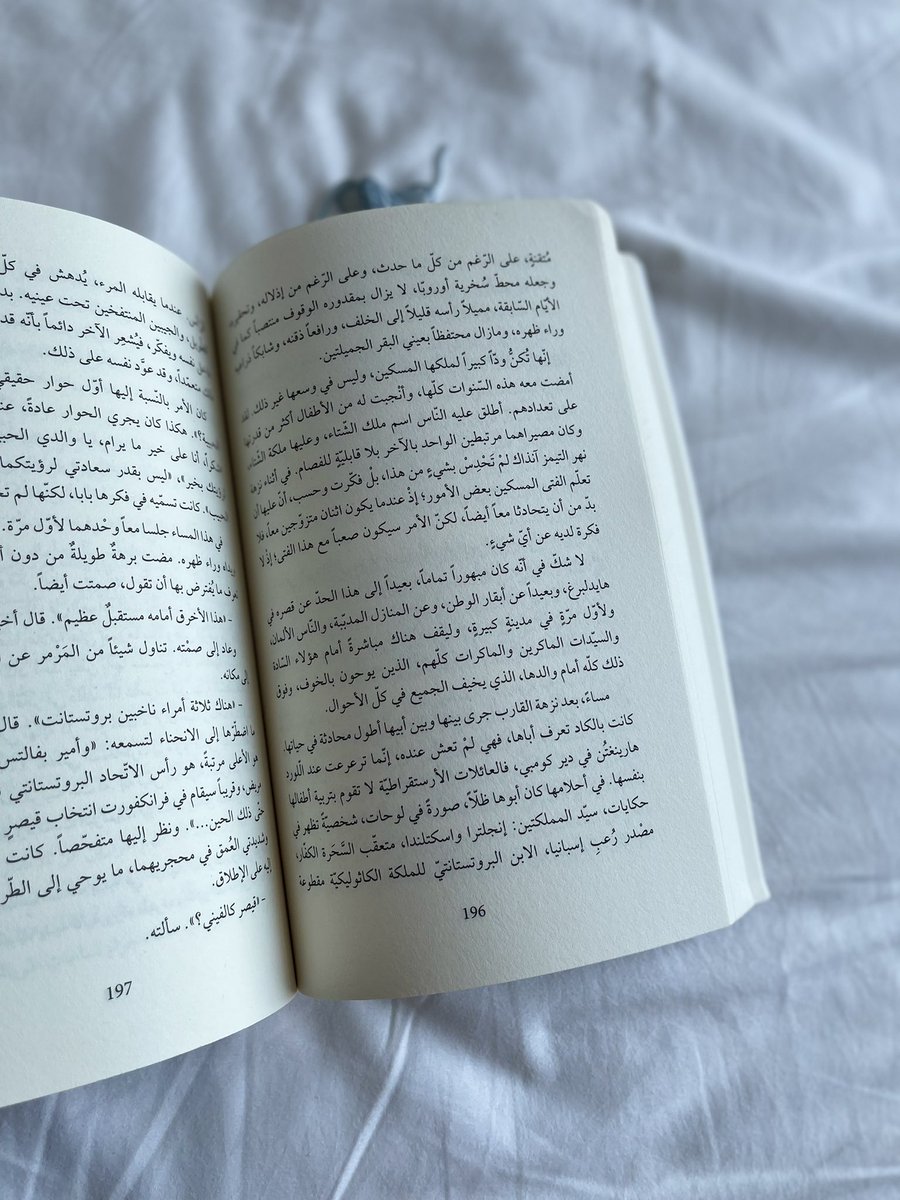 مُتقنةٍ، على الرّغم من كلّ ما حدث، وعلى الرّغم من إذلاله، وتحقيره
وجعله محطّ سُخرية أوروبّا، لا يزال بمقدوره الوقوف منتصباً كما في
الأيّام السّابقة، مميلاً رأسه قليلاً إلى الخلف، ورافعاً ذقنه، وشابكاً ذراعيه
وراء ظهره، ومازال محتفظاً بعيني البقر الجميلتين.
إنّها تُكنُّ ودّاً كبيراً لملكها المسكين، وليس في وسعها غير ذلك. لقد
أمضت معه هذه السّنوات كلّها، وأنْجبت له من الأطفال أكثر من قدرتها
على تعدادهم. أطلق عليه النّاس اسم ملك الشّتاء، وعليها ملكة الشّتاء،
وكان مصيراهما مرتبطين الواحد بالآخر بلا قابليّةٍ للفصام. في أثناء نزهة
نهر التيمز آنذاك لمْ تَحْدِسْ بشيءٍ من هذا، بلْ فكّرت وحسب، أنّ عليها أن
تعلّم الفتى المسكين بعض الأمور؛ إذْ عندما يكون اثنان متزوّجين معاً، فلا
بدّ من أن يتحادثا معاً أيضاً، لكنّ الأمر سيكون صعباً مع هذا الفتى؛ إذ لا
فكرة لديه عن أيّ شيءٍ.
لا شكّ في أنّه كان مبهوراً تماماً، بعيداً إلى هذا الحدّ عن قصره في
هايدلبرغ، وبعيداً عن أبقار الوطن، وعن المنازل المدبّبة، والنّاس الألمان،
ولأوّل مرّةٍ في مدينةٍ كبيرةٍ، وليقف هناك مباشرةً أمام هؤلاء السّادة
والسيّدات الماكرين والماكرات كلّهم، الذين يوحون بالخوف، وفوق
ذلك كلّه أمام والدها، الذي يخيف الجميع في كلّ الأحوال.
مساءً، بعد نزهة القارب جرى بينها وبين أبيها أطول محادثة في حياتها.
كانت بالكاد تعرف أباها، فهي لمْ تعش عنده، إنّما ترعرعت عند اللّورد
هارينغتُن في دير كومبي، فالعائلات الأرستقراطيّة لا تقوم بتربية أطفالها
بنفسها. في أحلامها كان أبوها ظلّاً، صورةً في لوحات، شخصيّةً تظهر في
حكايات، سيّد المملكتين: إنجلترا واسكتلندا، متعقّب السَّحَرة الكفّار،
مصْدر رُعبِ إسبانيا، الابن البروتستانتيّ للملكة الكاثوليكيّة مقطوعة
196
عندما يقابله المرء، يُدهش في كلّ
والجيبين المنتفخين تحت عينيه.
نفسه ويفكّر، فيُشعِر الآخر دائماً بأنّه
متعمّداً، وقد عوَّد نفسه على ذلك.
كان الأمر بالنّسبة إليها أوّل حوار حقيقي
هكذا كان يجري الحوار عادةً،
أنا على خير ما يرام، يا والدي
بخير»، «ليس بقدر سعادتي لرؤيتكما
كانت تسمّيه في فكرها بابا، لكنّها لم
في هذا المساء جلسا معاً وحْدهما لأوّل مرّة.
وراء ظهره. مضت برهةٌ طويلةٌ من دون
ما يُفترض بها أن تقول، صمتت أيضاً.
- «هذا الأخرق أمامه مستقبلٌ عظيم». قال
وعاد إلى صمْته. تناول شيئاً من المَرْمر عن
إلى مكانه.
- «هناك ثلاثة أمراء ناخبين بروتستانت». قال
ما اضطرّها إلى الانحناء لتسمعه: «وأمير بفالتس
هو الأعلى مرتبةً، هو رأس الاتّحاد البروتستانتي
مريض، وقريباً سيقام في فرانكفورت انتخاب قيصرٍ
حتّى ذلك الحين...». ونظر إليها متفحّصاً. كانت
وشديدتي العُمق في محجريهما، ما يوحي إلى
إليه على الإطلاق.
- «قيصر كالفيني؟». سألته.
197